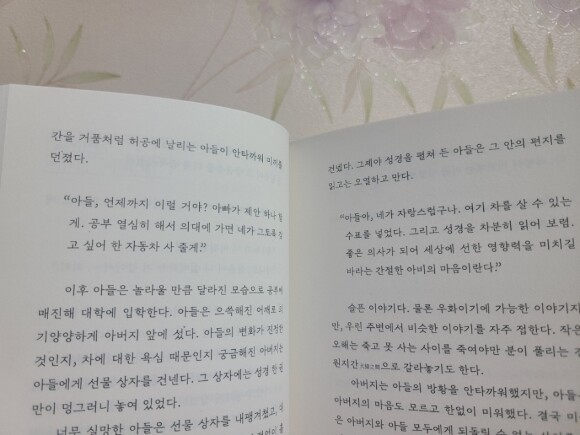 간을 거품처럼 허공에 날리는 아들이 안타까워 미끼를
던졌다.
“아들, 언제까지 이럴 거야? 아빠가 제안 하나 할
게. 공부 열심히 해서 의대에 가면 네가 그토록 갖
고 싶어 한 자동차 사 줄게.”
이후 아들은 놀라울 만큼 달라진 모습으로 공부에
매진해 대학에 입학한다. 아들은 으쓱해진 어깨로 의
기양양하게 아버지 앞에 섰다. 아들의 변화가 진정한
것인지, 차에 대한 욕심 때문인지 궁금해진 아버지는
아들에게 선물 상자를 건넨다. 그 상자에는 성경 한 권
만이 덩그러니 놓여 있었다.
너무 실망한 아들은 선물 상자를 내팽개쳤고,
건넸다. 그제야 성경을 펼쳐 든 아들은 그 안의 편지를
읽고는 오열하고 만다.
“아들아, 네가 자랑스럽구나. 여기 차를 살 수 있는
수표를 넣었다. 그리고 성경을 차분히 읽어 보렴.
좋은 의사가 되어 세상에 선한 영향력을 미치길
바라는 간절한 아비의 마음이란다.”
슬픈 이야기다. 물론 우화이기에 가능한 이야기지
만, 우린 주변에서 비슷한 이야기를 자주 접한다. 작은
오해는 죽고 못 사는 사이를 죽여야만 분이 풀리는 
원지간으로 갈라놓기도 한다.
아버지는 아들의 방황을 안타까워했지만, 아들은
아버지의 마음도 모르고 한없이 미워했다. 결국 미
은 아버지와 아들 모두에게 되돌릴 수 없는